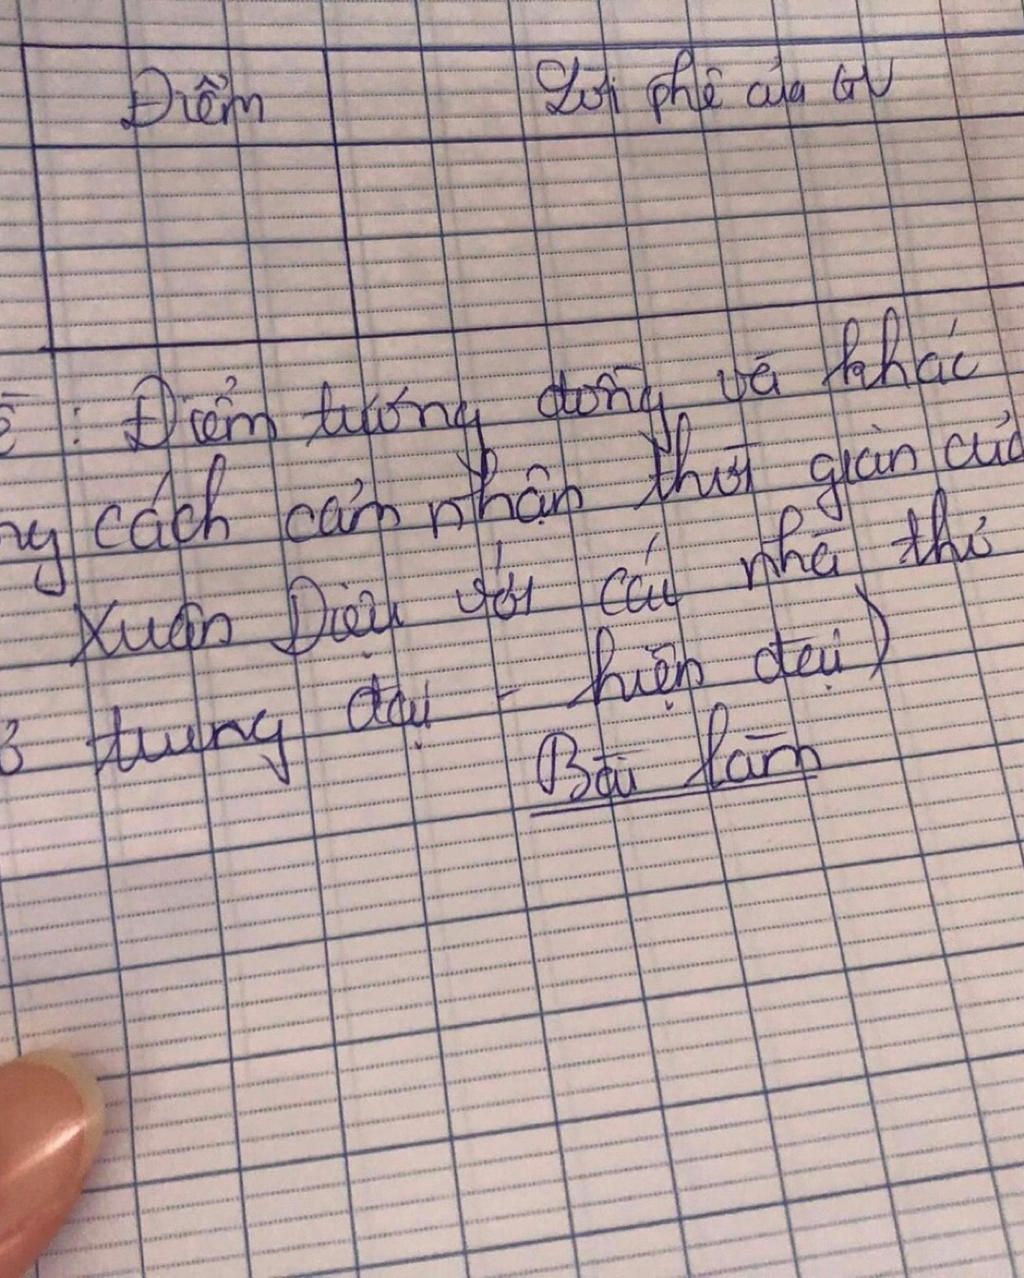 Điểm
Lời phê của GV
: Điểm tương đồng và khác
cách cảm nhận thời gian của
Xuân Diệu với các nhà thơ
trung đại - hiện đại)
Bài làm